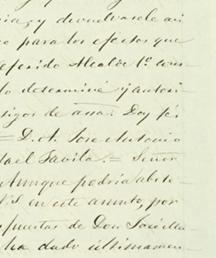 ria, y devuelvasele asi
o para los efectos que
referido Alcalde 1º cons
lo determiné y autori
tigos de assa. Doy fé
= D. A. José Antonio
fael Davila. = Señor
Aunque podria abste
V.S. en este asunto, por
puestas de Don José Ma
ha dado ultimamen